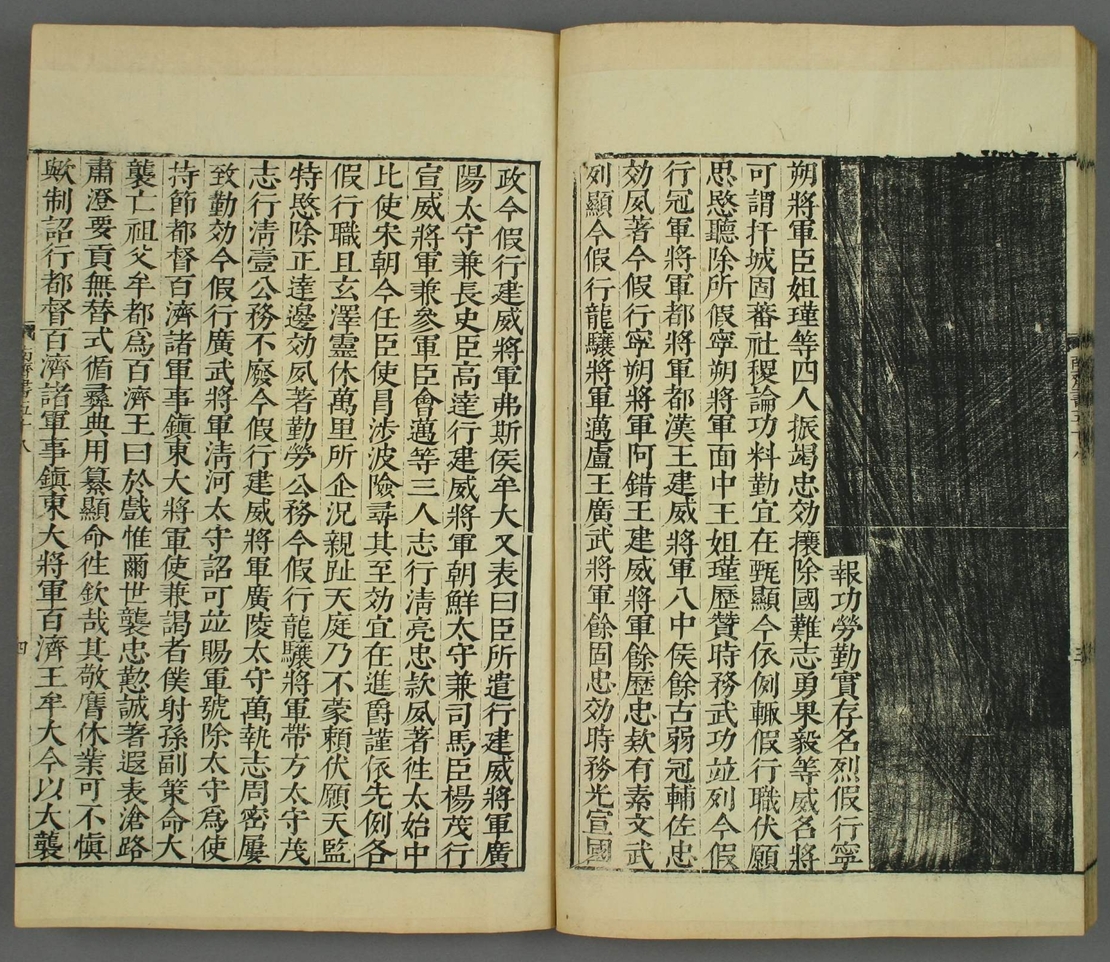 報功勞勤實存名烈假行寧
朔將軍臣姐瑾等四人振竭忠効攘除國難志勇果毅等威名將
可謂扞城固蕃社稷論功料勤宜在甄顯今依例輒假行職伏願
思愍聽除所假寧朔將軍面中王姐瑾歷贊時務武功並列今假
行冠軍將軍都將軍都漢王建威將軍八中侯餘古弱冠輔佐忠
効夙著今假行寧朔將軍阿錯王建威將軍餘歷忠款有素文武
列顯今假行龍驤將軍邁盧王廣武將軍餘固忠効時務光宣國
政今假行建威將軍弗斯侯牟大又表曰臣所遣行建威將軍廣
陽太守兼長史臣高達行建威將軍朝鮮太守兼司馬臣楊茂行
宣威將軍兼參軍臣會邁等三人志行淸亮忠款夙著往太始中
比使宋朝今任臣使冒涉波險尋其至効宜在進爵謹依先例各
假行職且玄澤靈休萬里所企況親趾天庭乃不蒙賴伏願天監
特愍除正達邊効夙著勤勞公務今假行龍驤將軍帶方太守茂
志行淸壹公務不廢今假行建威將軍廣陵太守萬執志周密屢
致勤効今假行廣武將軍淸河太守詔可並賜軍號除太守爲使
持節都督百濟諸軍事鎭東大將軍使兼謁者僕射孫副策命大
襲亡祖父牟都爲百濟王曰於戲惟爾世襲忠懃誠著遐表滄路
肅澄要貢無替式循彝典用纂顯命往欽哉其敬膺休業可不愼
歟制詔行都督百濟諸軍事鎭東大將軍百濟王牟大今以大襲
四